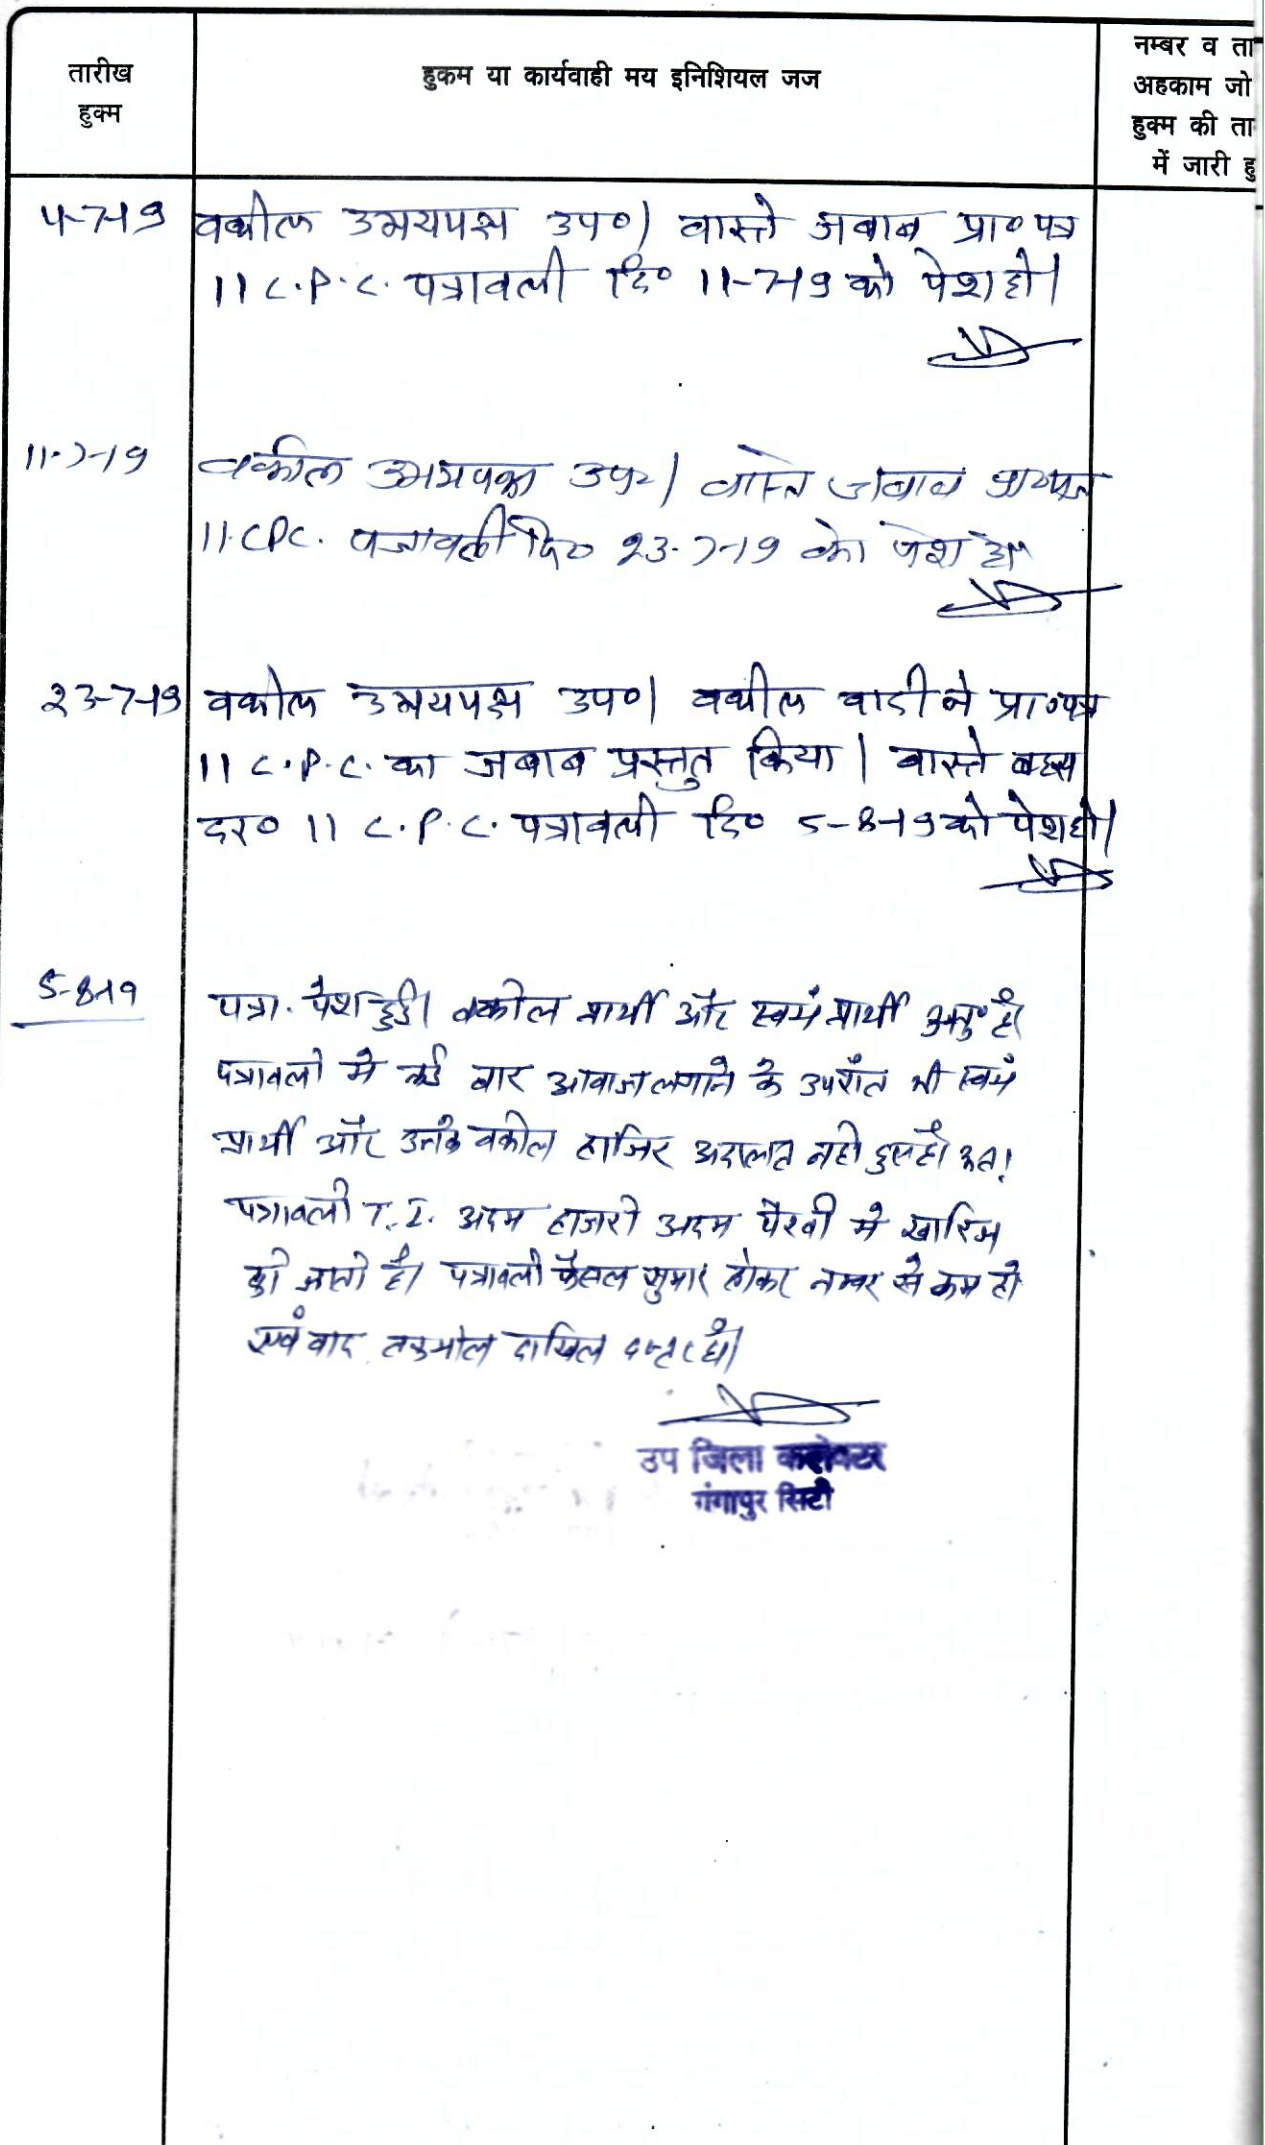 तारीख
हुक्म
हुकम या कार्यवाही मय इनिशियल जज
नम्बर व ता
अहकाम जो
हुक्म की ता
में जारी हु
4-7-19 वकील उभयपक्ष उप०। वास्ते जबाब प्रा०पत्र
11 C.P.C. पत्रावली दि० 11-7-19 को पेश हो।
11-7-19 वकील उभयपक्ष उप०। वास्ते जबाब
11 CPC. पत्रावली दि० 23-7-19 को पेश हो
23-7-19 वकील उभयपक्ष उप०। वकील वादी ने प्रा०पत्र
11 C.P.C. का जबाब प्रस्तुत किया। वास्ते बहस
दर० 11 C.P.C. पत्रावली दि० 5-8-19 को पेश हो।
5-8-19 पत्रा. पेश हुई। वकील प्रार्थी और स्वयं प्रार्थी अनु० है।
पत्रावली मे कई बार आवाज लगाने के उपरांत भी स्वयं
प्रार्थी और उनके वकील हाजिर अदालत नही हुए है। अतः
पत्रावली T.I. अदम हाजरी अदम पैरवी मे खारिज
की जाती है। पत्रावली फैसल शुमार होकर नम्बर से कम हो
एवं बाद तकमील दाखिल दफ्तर हो।
उप जिला कलेक्टर
गंगापुर सिटी